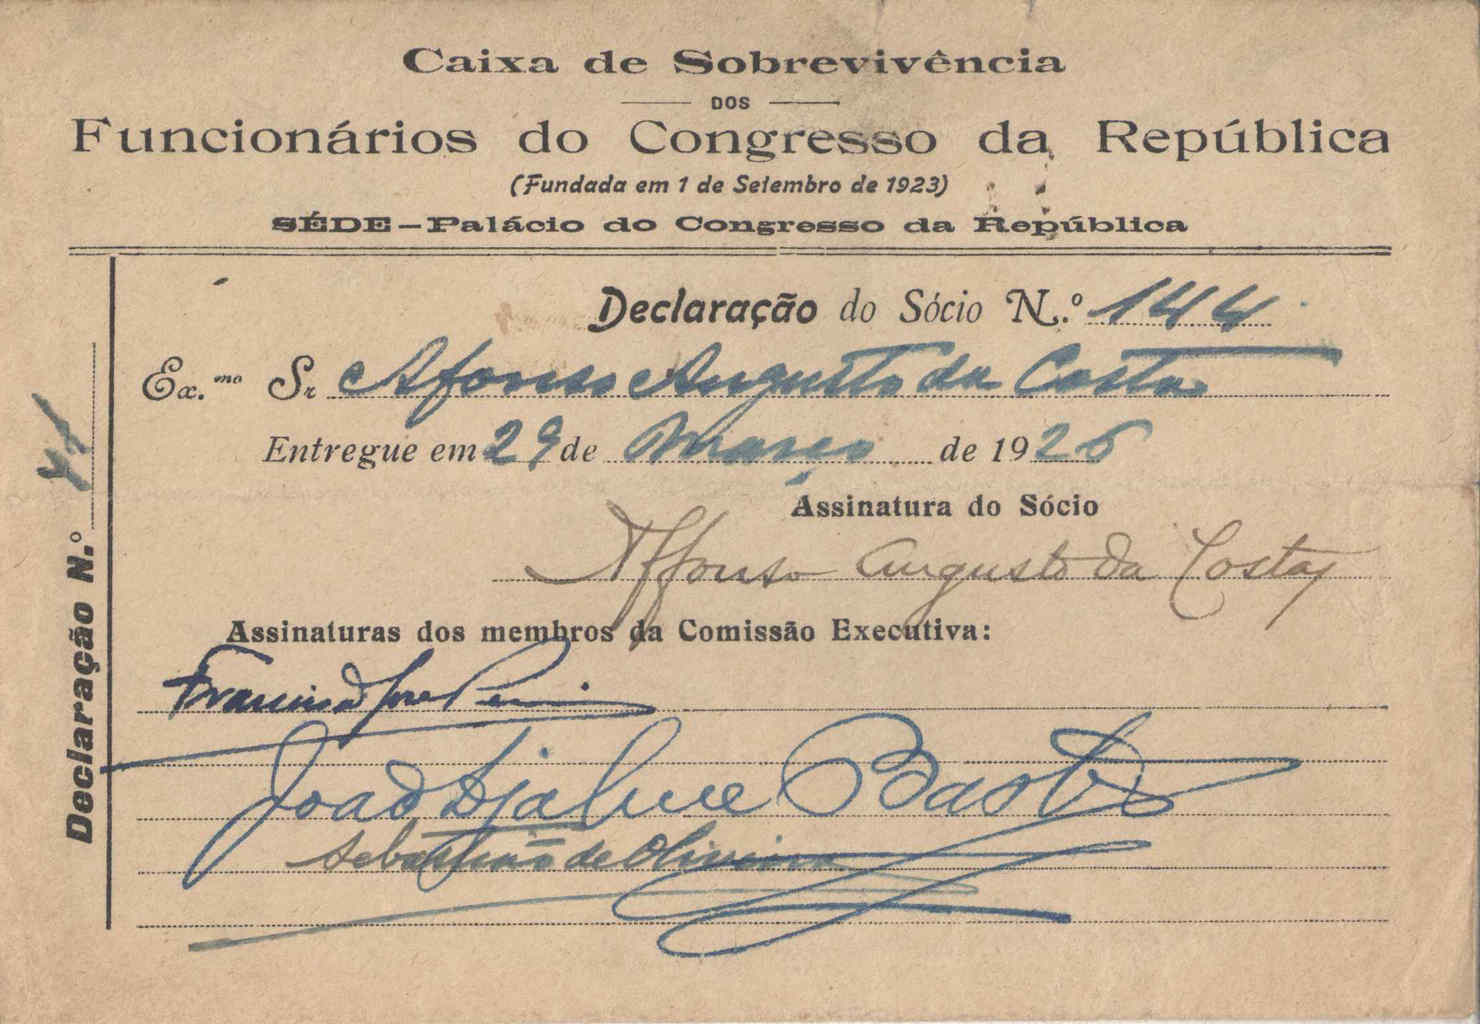 Caixa de Sobrevivência
DOS
Funcionários do Congresso da República
(Fundada em 1 de Setembro de 1923)
SÉDE—Palácio do Congresso da República
Declaração do Sócio N.º 144
Ex.mo Sr Afonso Augusto da Costa
Entregue em 29 de Março de 1926
Assinatura do Sócio
Affonso Augusto da Costa
Assinaturas dos membros da Comissão Executiva:
Francisco José
João Djalme Bastos
Sebastião de Oliveira
Declaração N.º 41